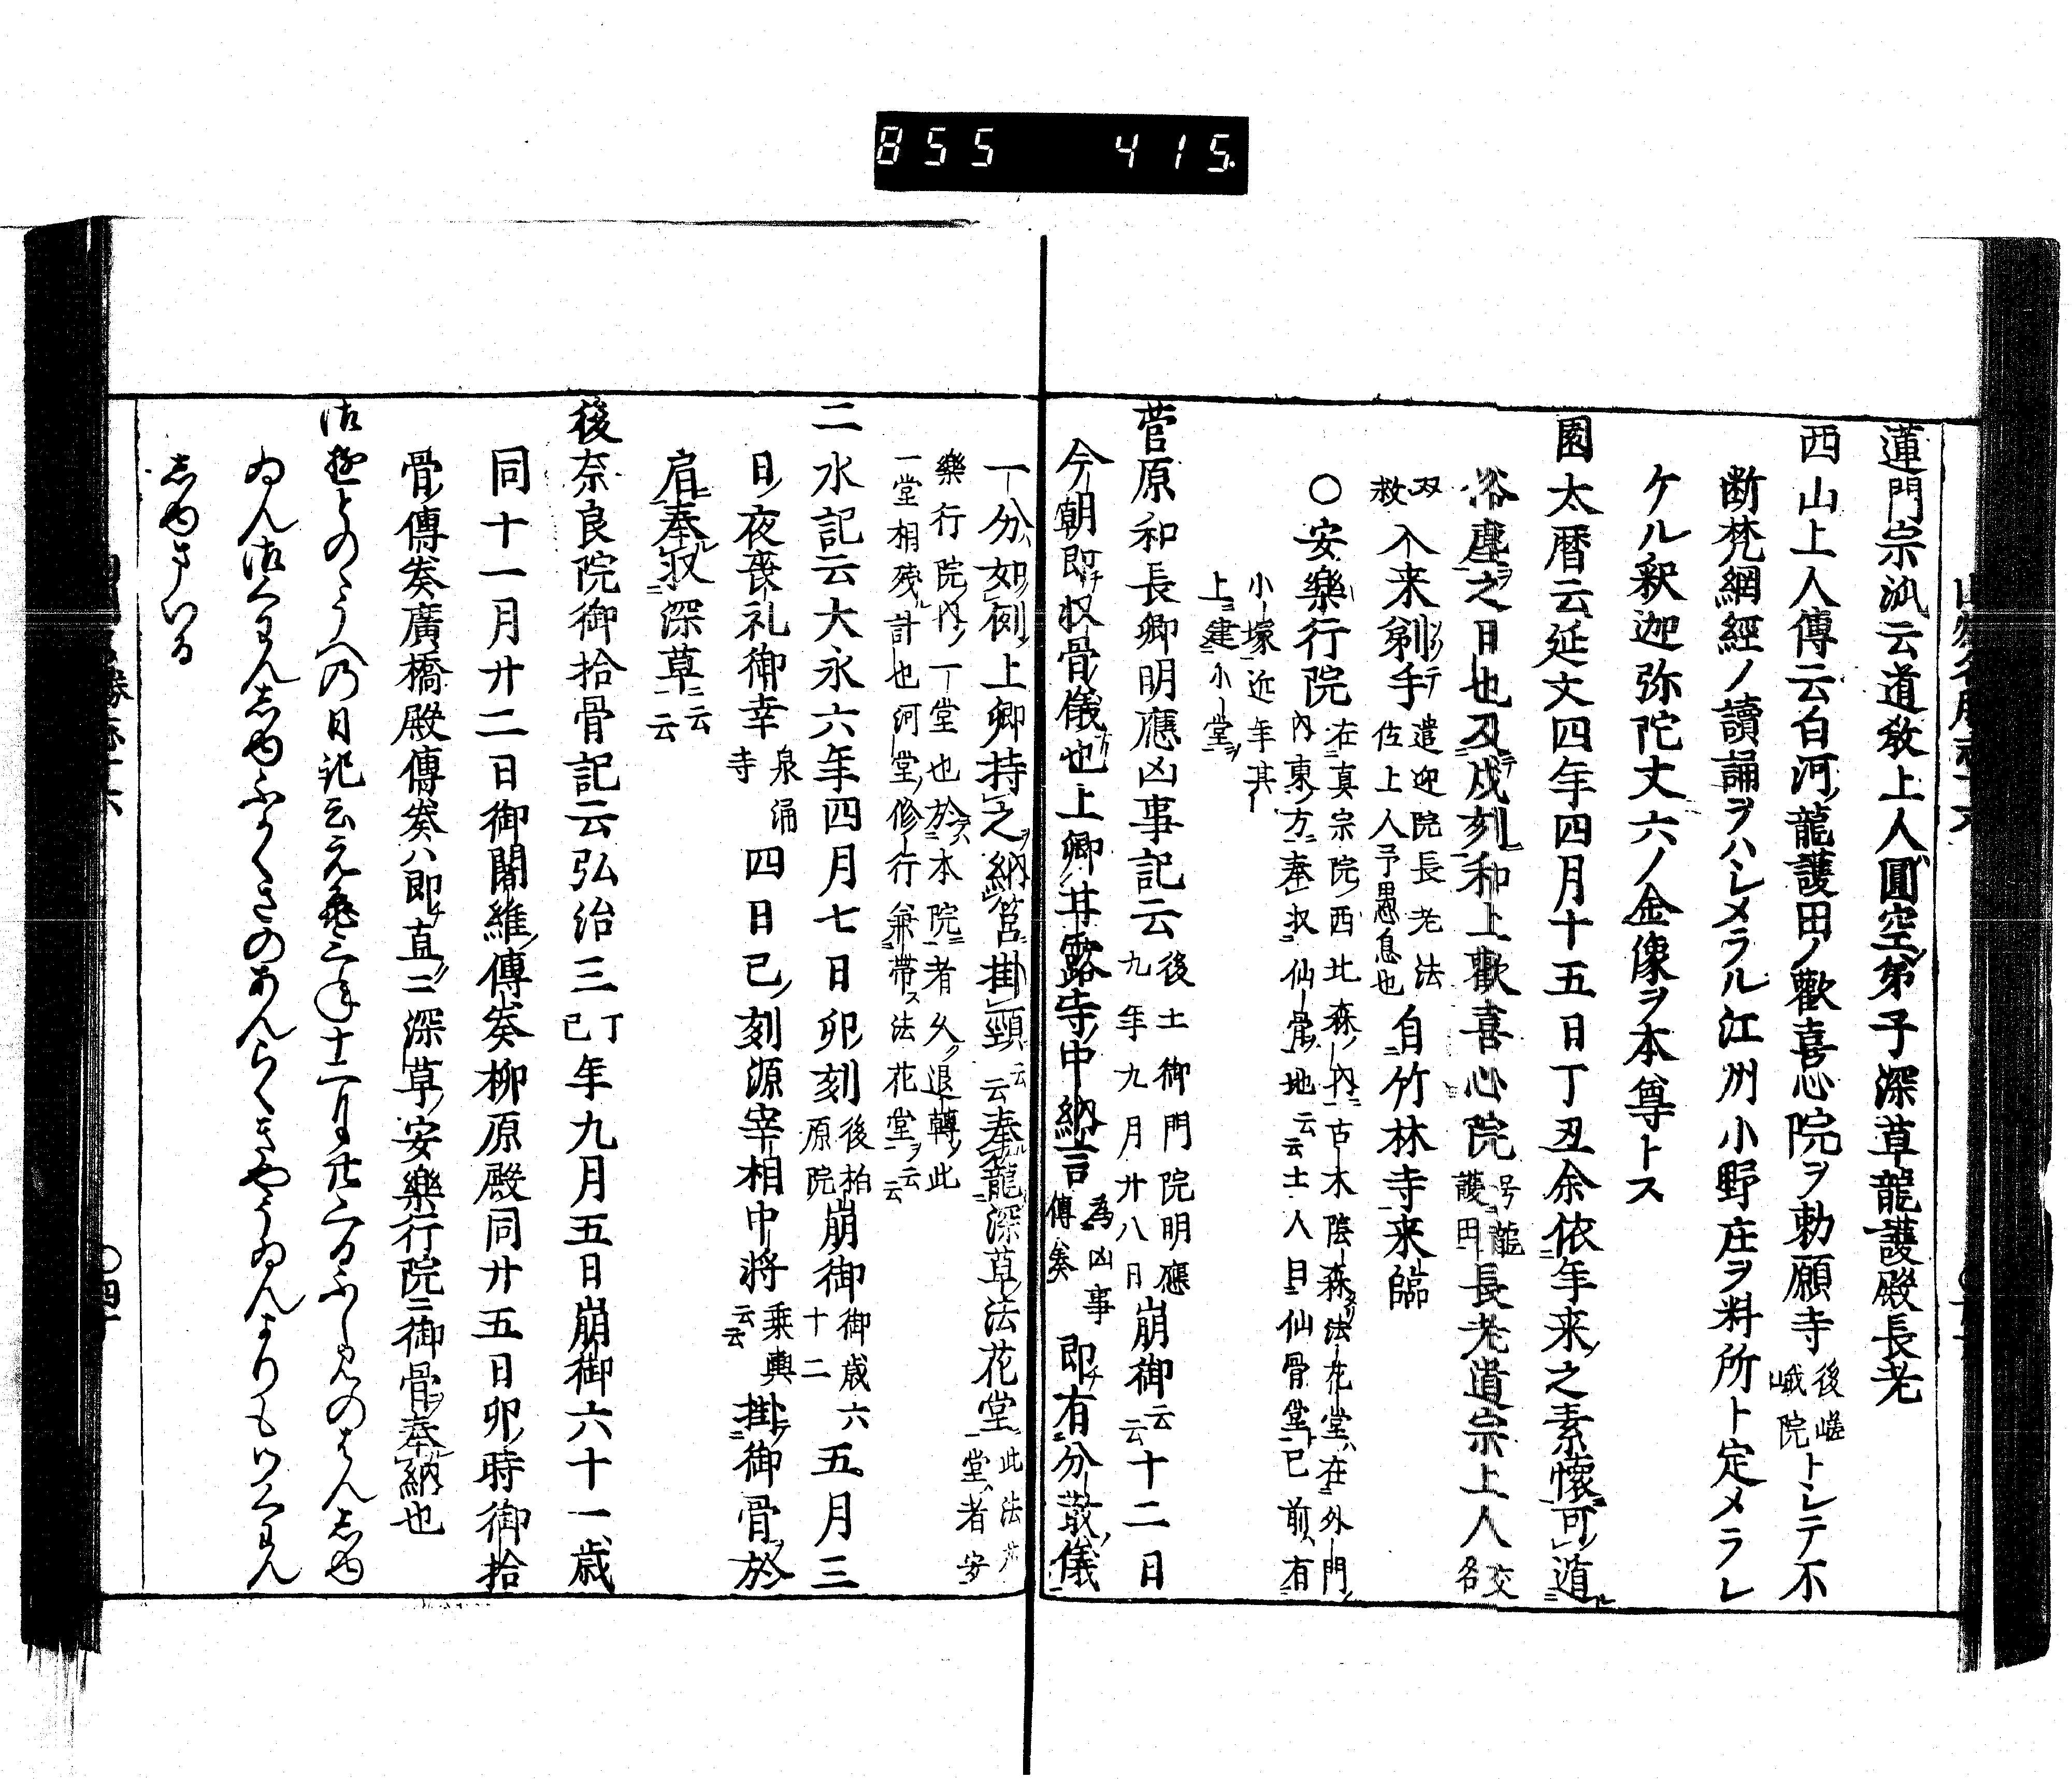 855 415
蓮門宗派云道教上人圓空弟子深草龍護殿長老
西山上人傳云白河ノ龍護田ノ歡喜心院ヲ勅願寺 後嵯峨院 トシテ不
断梵網經ノ讀誦ヲハシメラル江州小野庄ヲ料所ト定メラレ
ケル釈迦弥陀丈六ノ金像ヲ本尊トス
園太暦云延文四年四月十五日丁丑余依年来之素懷可遁
俗塵之日也及戌刻和上歡喜心院 号龍護田 長老遺宗上人 交名
双救 入来剃手 遣迎院長老法佐上人予愚息也 自竹林寺来臨
○安樂行院 在真宗院ノ西北森ノ内ニ古木陰森タリ法花堂ハ在外門ノ
内東ノ方ニ奉収仙骨ノ地云云土人目仙骨堂ト已前ハ有
小塚近年其
上ニ建小堂ヲ
菅原和長卿明應凶事記云 後土御門院明應九年九月廿八日 崩御云云十二日
今朝即チ収骨儀也上卿甘露寺中納言 為凶事傳奏 即チ有分散儀
一分如例上卿持之納筥掛頸云云奉龍深草法花堂 此法花堂ハ者安
樂行院ノ内ノ一堂也於本院者久ク退轉ノ此
一堂相殘計也河堂ノ修行兼帯ス法花堂ヲ云云
二水記云大永六年四月七日卯刻 後柏原院 崩御 御歳六十二 五月三
日ノ夜喪礼御幸 泉涌寺 四日巳ノ刻源宰相中將 乗輿云云 掛御骨ヲ於
肩奉収深草云云
後奈良院御拾骨記云弘治三 丁巳 年九月五日崩御六十一歳
同十一月廿二日御闍維ノ傳奏柳原殿同廿五日卯ノ時御拾
骨ノ傳奏廣橋殿傳奏ハ即チ直ニ深草ノ安樂行院ニ御骨ヲ奉納也
のうへの日記云 年十二月 ふしみの しゆ
ゐん しゆふかくさのあんらくきやうゐんよりもいくわん
しゆまいる